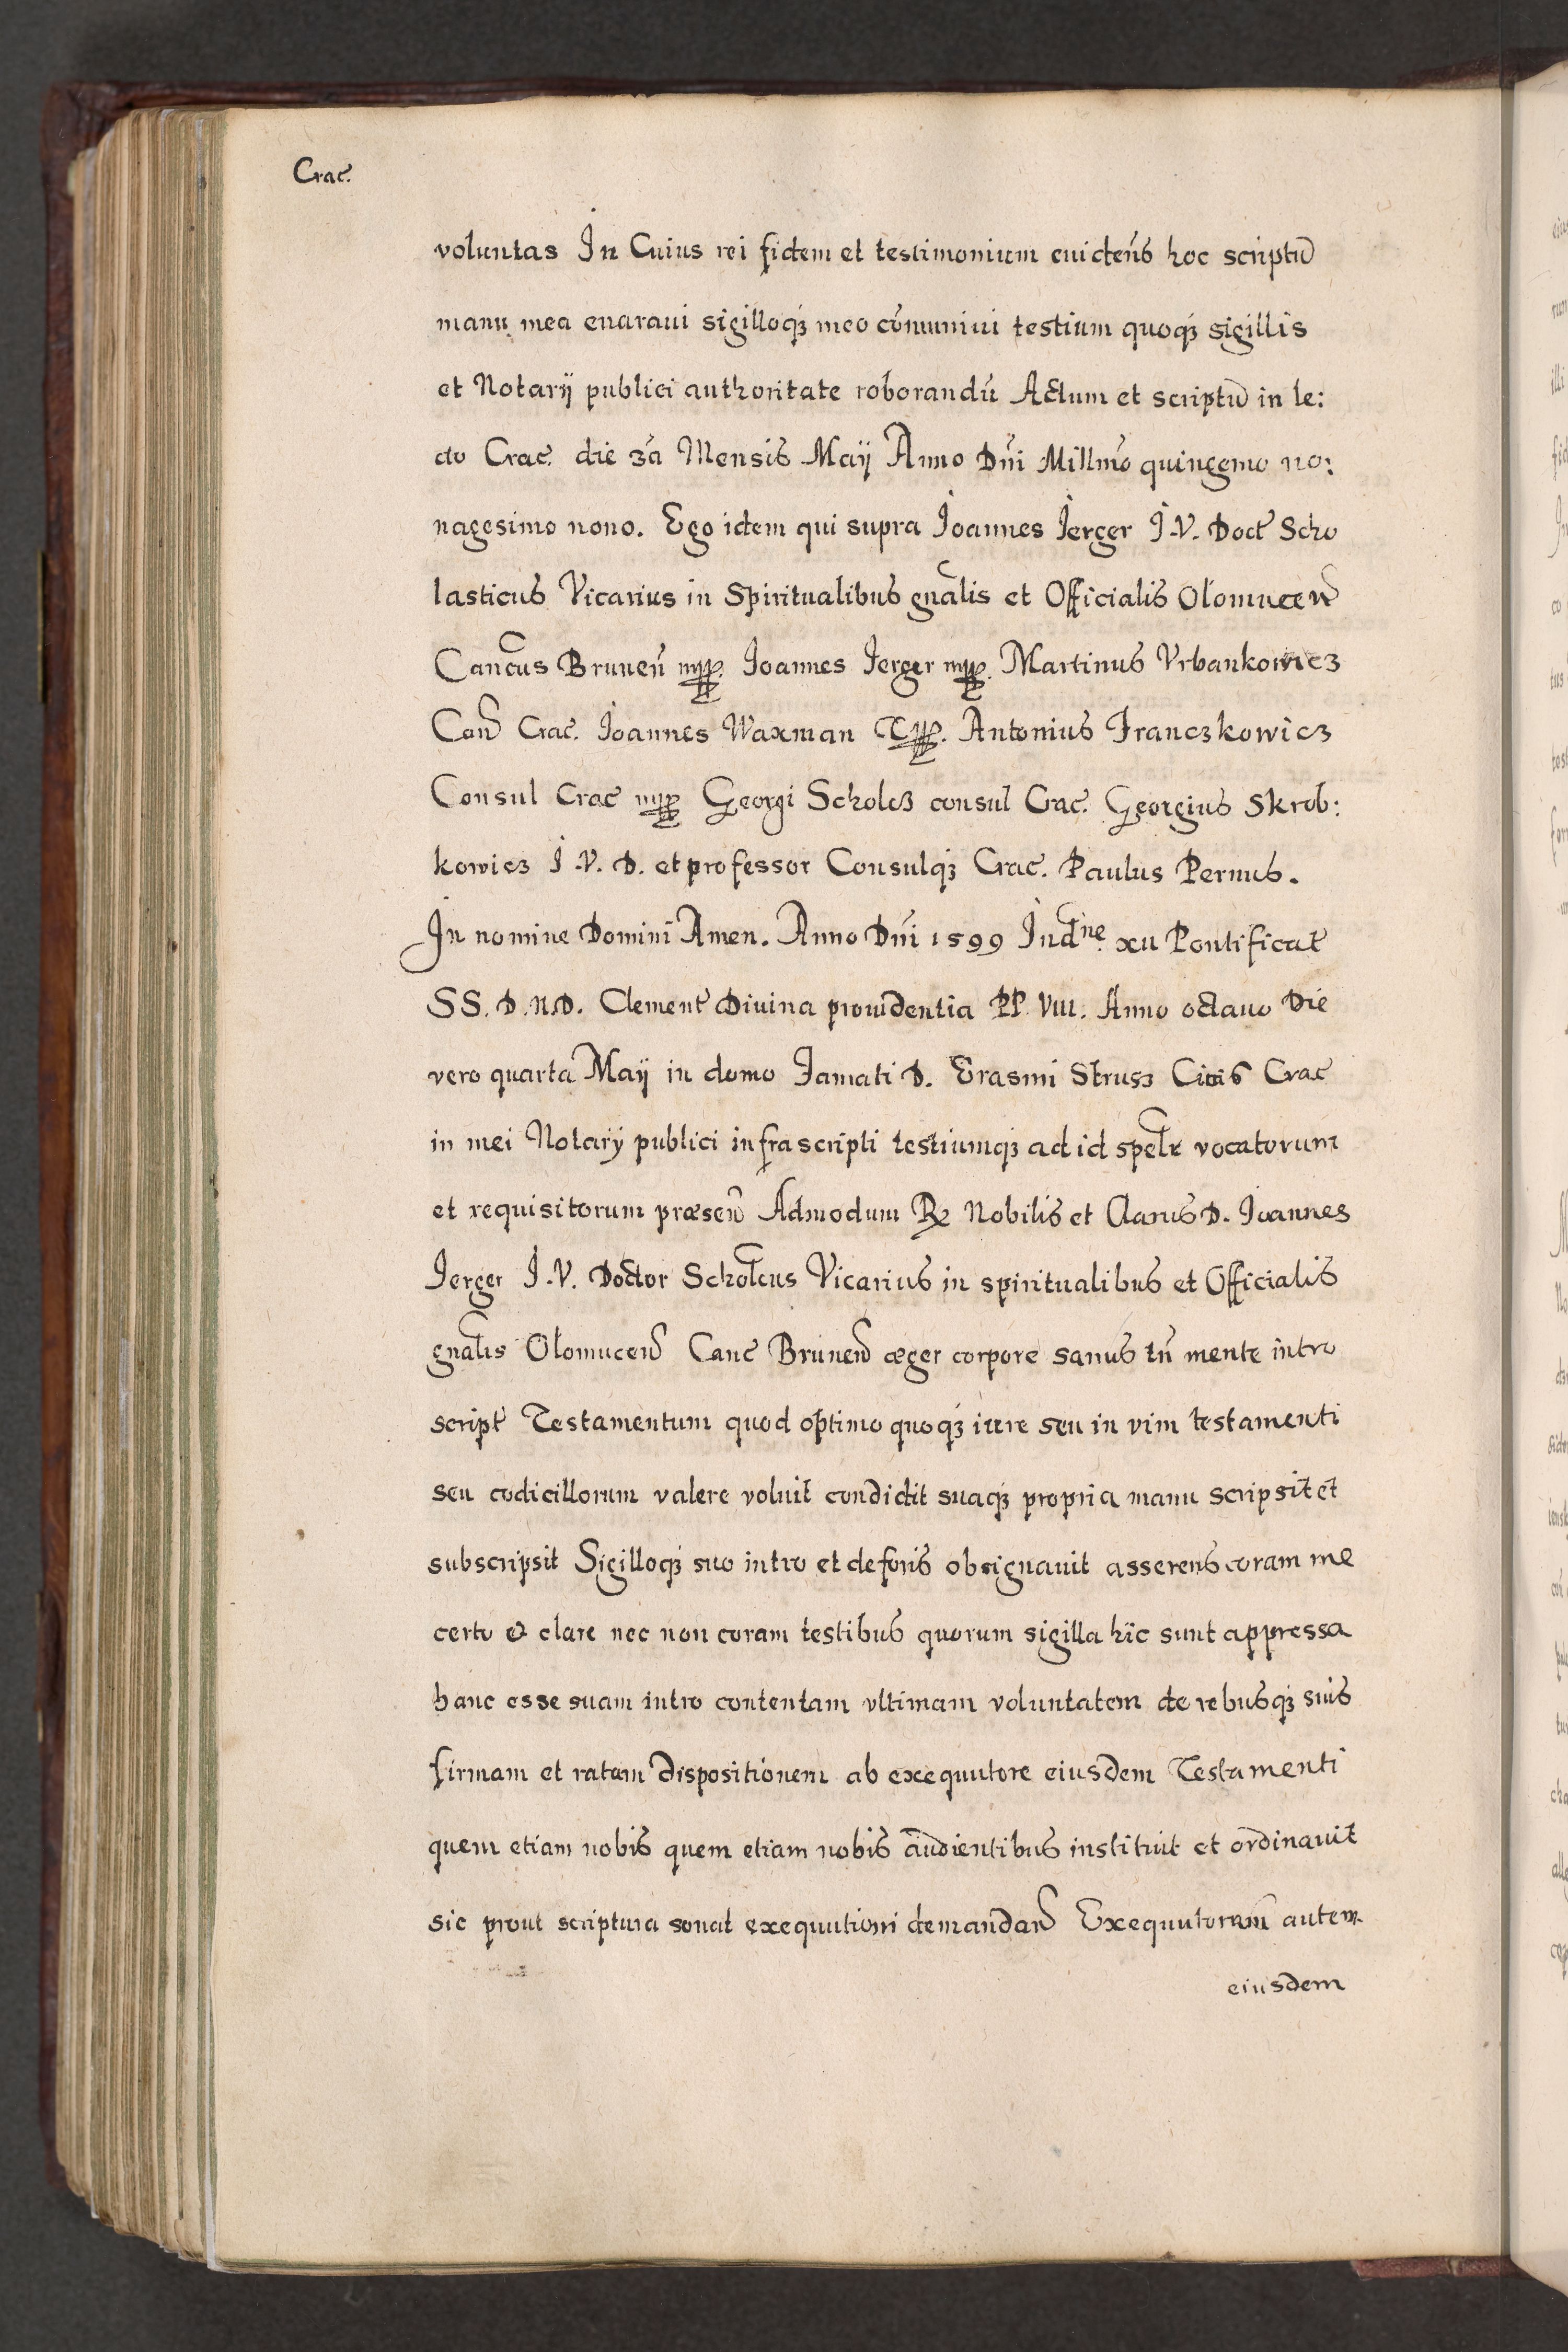 Crac.
voluntas In Cuius rei fidem et testimonium euidens hoc scriptū
manu mea enaraui sigilloqȝ meo cōmuniui testium quoqȝ sigillis
et Notarij publici authoritate roborandū Actum et scriptū in le:
cto Crac. die 3a Mensis Maij Anno Dñi Millmo quingemo no:
nagesimo nono. Ego idem qui supra Joannes Jerger J.V. Doct Scho
lasticus Vicarius in Spiritualibus gñalis et Officialis Olomucen
Cancus Brunen mpp. Joannes Jerger mpp. Martinus Vrbankowicz
Can Crac. Joannes Waxman mpp. Antonius Franczkowicz
Consul Crac mpp Georgi Scholcz consul Crac. Georgius Skrob:
kowicz J.V.D. et professor Consulqȝ Crac. Paulus Pernus.
In nomine Domini Amen. Anno Dñi 1599 Indne xii Pontificat
SS. D.N.D. Clement Diuina prouidentia PP. VIII. Anno octauo Die
vero quarta Maij in domo Famati D. Erasmi Strusz Ciuis Crac
in mei Notarij publici infrascripti testiumqȝ ad id spelr vocatorum
et requisitorum præsen Admodum R. Nobilis et Clarus D. Joannes
Jerger J.V. Doctor Scholcus Vicarius in spiritualibus et Officialis
gñalis Olomucen Canc Brunen æger corpore sanus tñ mente intro
script Testamentum quod optimo quoqȝ iure seu in vim testamenti
seu codicillorum valere voluit condidit suaqȝ propria manu scripsit et
subscripsit Sigilloqȝ suo intro et deforis obsignauit asserens coram me
certo & clare nec non coram testibus quorum sigilla hic sunt appressa
hanc esse suam intro contentam vltimam voluntatem de rebusqȝ suis
firmam et ratam dispositionem ab exequutore eiusdem Testamenti
quem etiam nobis quem etiam nobis audientibus instituit et ordinauit
sic prout scriptura sonat exequutioni demandan Exequutorem autem
eiusdem